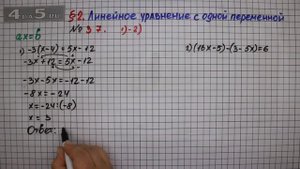 4 A 5.ru
§2. Линейное уравнение с одной переменной
ax=b
№ 37. 1)-2)
1) -3(x-4)=5x-12
-3x+12=5x-12
-3x-5x=-12-12
-8x=-24
x=-24:(-8)
x=3
Ответ:
2) (16x-5)-(3-5x)=6